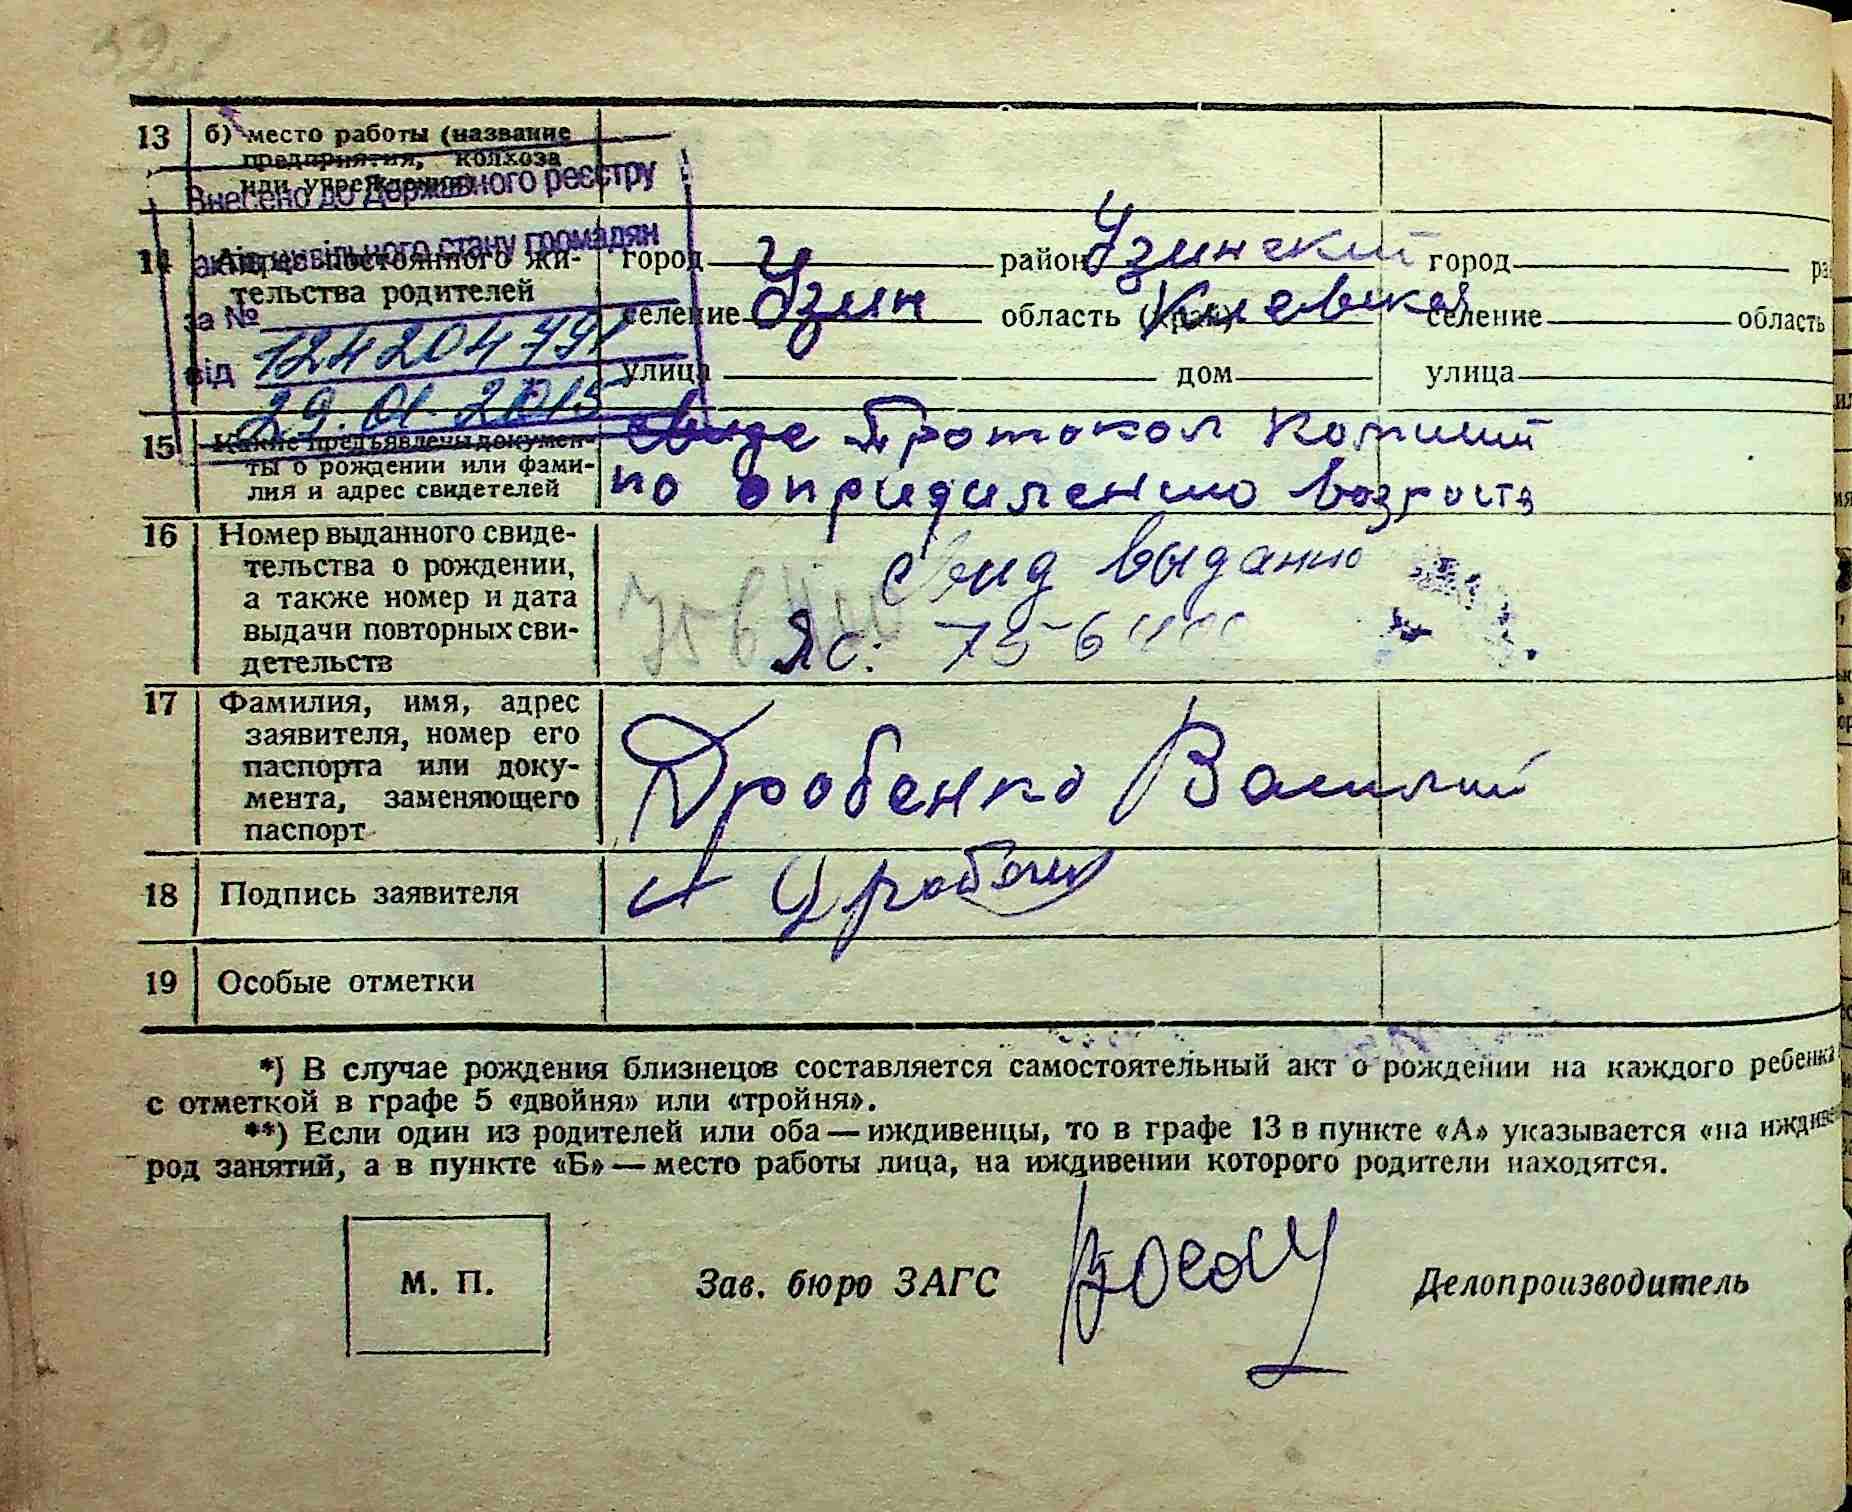 13 б) место работы (название
предприятия, колхоза
или учреждения)
Внесено до Державного реєстру
актів цивільного стану громадян
за № 124204791
від 29.01.2015
14 Адрес постоянного жи-
тельства родителей
город район Узинский город
селение Узин область (край) Киевская селение область
улица дом улица
15 Какие предъявлены докумен-
ты о рождении или фами-
лия и адрес свидетелей
Протокол Комиший
по опридилению возроста
16 Номер выданного свиде-
тельства о рождении,
а также номер и дата
выдачи повторных сви-
детельств
свид выданно
ЯС: 756
17 Фамилия, имя, адрес
заявителя, номер его
паспорта или доку-
мента, заменяющего
паспорт
Дробенко Василий
18 Подпись заявителя
19 Особые отметки
*) В случае рождения близнецов составляется самостоятельный акт о рождении на каждого ребенка
с отметкой в графе 5 «двойня» или «тройня».
**) Если один из родителей или оба — иждивенцы, то в графе 13 в пункте «А» указывается «на иждиве
род занятий, а в пункте «Б» — место работы лица, на иждивении которого родители находятся.
М. П. Зав. бюро ЗАГС Делопроизводитель